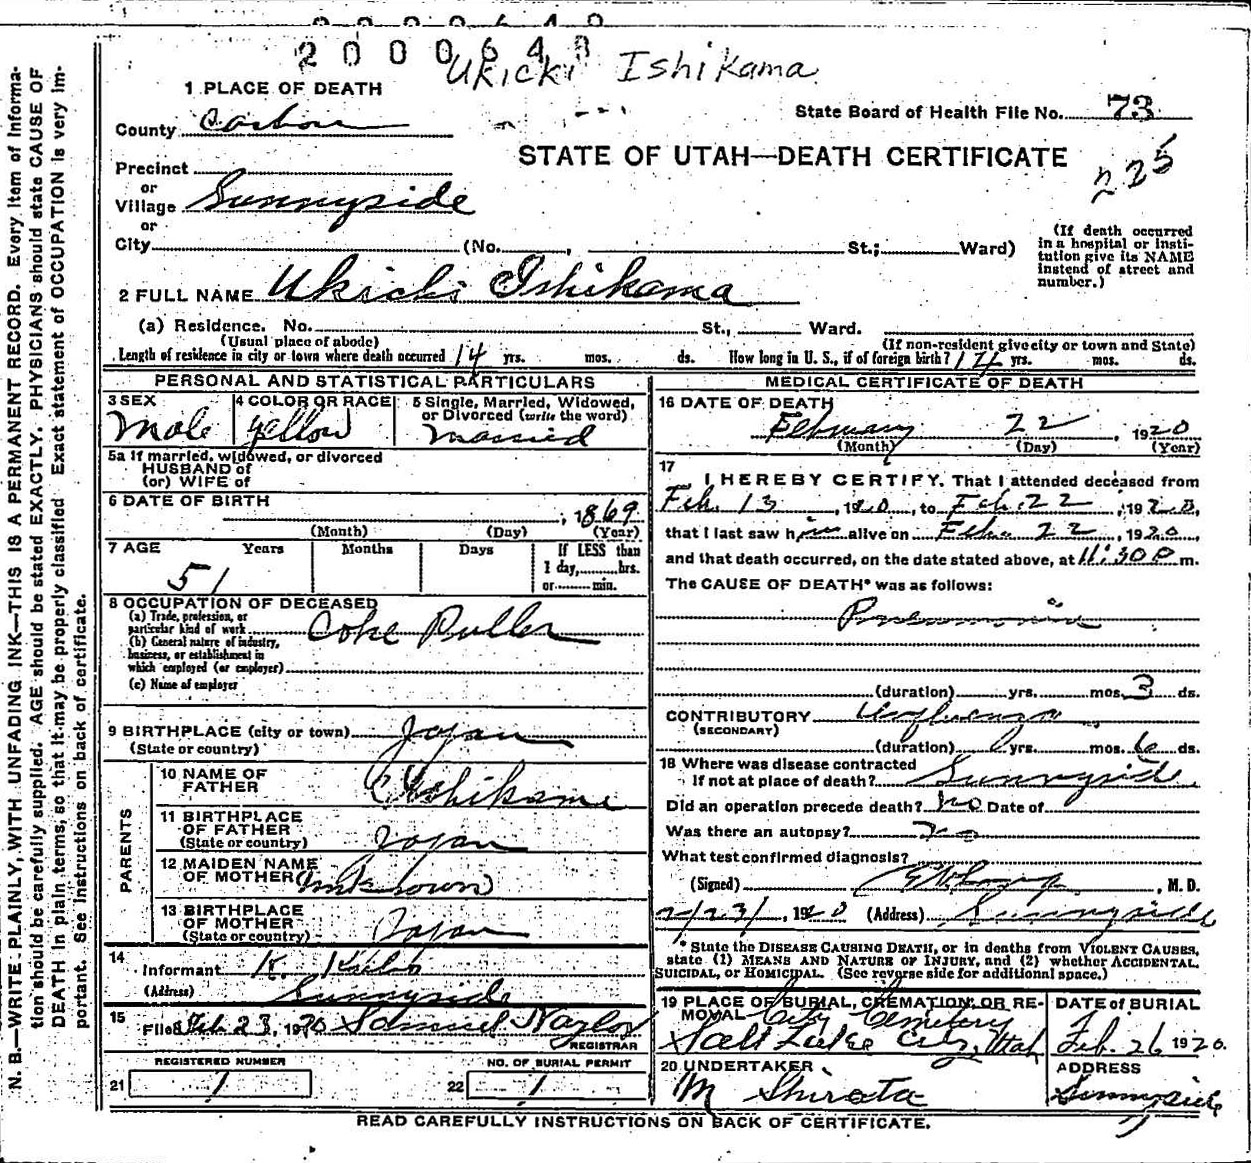 2000648
Ukicki Ishikama
1 PLACE OF DEATH
State Board of Health File No. 73
County Carbon
STATE OF UTAH—DEATH CERTIFICATE
225
Precinct
or
Village Sunnyside
or
City (No. , St.; Ward)
(If death occurred in a hospital or insti-
tution give its NAME
instead of street and
number.)
2 FULL NAME Ukicki Ishikama
(a) Residence. No. St., Ward.
(Usual place of abode) (If non-resident give city or town and State)
Length of residence in city or town where death occurred 14 yrs. mos. ds. How long in U. S., if of foreign birth? 14 yrs. mos. ds.
PERSONAL AND STATISTICAL PARTICULARS
3 SEX Male
4 COLOR OR RACE yellow
5 Single, Married, Widowed,
or Divorced (write the word)
Married
5a If married, widowed, or divorced
HUSBAND of
(or) WIFE of
6 DATE OF BIRTH , 1869
(Month) (Day) (Year)
7 AGE Years Months Days If LESS than
1 day, hrs.
or min.
51
8 OCCUPATION OF DECEASED
(a) Trade, profession, or
particular kind of work Coke Puller
(b) General nature of industry,
business, or establishment in
which employed (or employer)
(c) Name of employer
9 BIRTHPLACE (city or town) Japan
(State or country)
PARENTS
10 NAME OF
FATHER Ishikama
11 BIRTHPLACE
OF FATHER
(State or country) Japan
12 MAIDEN NAME
OF MOTHER (unknown)
13 BIRTHPLACE
OF MOTHER
(State or country) Japan
14
Informant K.
(Address) Sunnyside
15
Filed Feb. 23, 1920 Samuel Naylor
REGISTRAR
REGISTERED NUMBER NO. OF BURIAL PERMIT
21 1 22 1
MEDICAL CERTIFICATE OF DEATH
16 DATE OF DEATH
February 22, 1920
(Month) (Day) (Year)
17
I HEREBY CERTIFY, That I attended deceased from
Feb. 13, 1920, to Feb. 22, 1920,
that I last saw him alive on Feb. 22, 1920,
and that death occurred, on the date stated above, at 11:30 P m.
The CAUSE OF DEATH* was as follows:
Pneumonia
(duration) yrs. mos. 3 ds.
CONTRIBUTORY Influenza
(SECONDARY)
(duration) yrs. mos. 6 ds.
18 Where was disease contracted
If not at place of death? Sunnyside
Did an operation precede death? no Date of
Was there an autopsy? no
What test confirmed diagnosis?
(Signed) , M. D.
2/23/, 1920 (Address) Sunnyside
* State the DISEASE CAUSING DEATH, or in deaths from VIOLENT CAUSES,
state (1) MEANS AND NATURE OF INJURY, and (2) whether ACCIDENTAL,
SUICIDAL, or HOMICIDAL. (See reverse side for additional space.)
19 PLACE OF BURIAL, CREMATION, OR RE-
MOVAL City Cemetery
Salt Lake City, Utah
DATE OF BURIAL
Feb. 26 1920.
20 UNDERTAKER
M Shirata
ADDRESS
Sunnyside
READ CAREFULLY INSTRUCTIONS ON BACK OF CERTIFICATE.
N. B.—WRITE PLAINLY, WITH UNFADING INK—THIS IS A PERMANENT RECORD. Every item of informa-
tion should be carefully supplied. AGE should be stated EXACTLY. PHYSICIANS should state CAUSE OF
DEATH in plain terms, so that it may be properly classified. Exact statement of OCCUPATION is very im-
portant. See instructions on back of certificate.